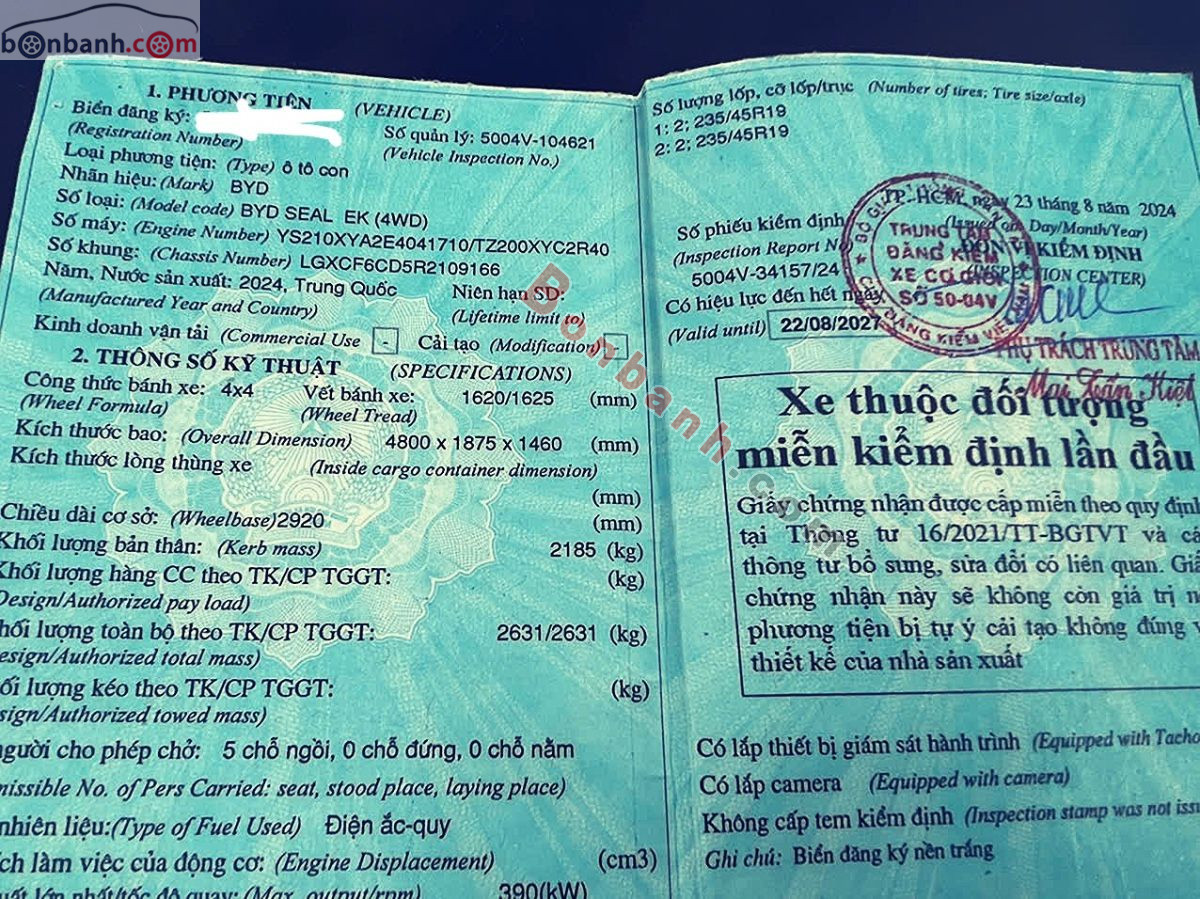 bonbanh.com
1. PHƯƠNG TIỆN (VEHICLE)
Biển đăng ký:
(Registration Number)
Số quản lý: 5004V-104621
(Vehicle Inspection No.)
Loại phương tiện: (Type) ô tô con
Nhãn hiệu: (Mark) BYD
Số loại: (Model code) BYD SEAL EK (4WD)
Số máy: (Engine Number) YS210XYA2E4041710/TZ200XYC2R40
Số khung: (Chassis Number) LGXCF6CD5R2109166
Năm, Nước sản xuất: 2024, Trung Quốc Niên hạn SD:
(Manufactured Year and Country) (Lifetime limit to)
Kinh doanh vận tải (Commercial Use - Cải tạo (Modification) -
2. THÔNG SỐ KỸ THUẬT (SPECIFICATIONS)
Công thức bánh xe: 4x4 Vết bánh xe: 1620/1625 (mm)
(Wheel Formula) (Wheel Tread)
Kích thước bao: (Overall Dimension) 4800 x 1875 x 1460 (mm)
Kích thước lòng thùng xe (Inside cargo container dimension)
(mm)
Chiều dài cơ sở: (Wheelbase)2920 (mm)
Khối lượng bản thân: (Kerb mass) 2185 (kg)
Khối lượng hàng CC theo TK/CP TGGT: (kg)
Design/Authorized pay load)
hối lượng toàn bộ theo TK/CP TGGT: 2631/2631 (kg)
esign/Authorized total mass)
ối lượng kéo theo TK/CP TGGT: (kg)
sign/Authorized towed mass)
người cho phép chở: 5 chỗ ngồi, 0 chỗ đứng, 0 chỗ nằm
missible No. of Pers Carried: seat, stood place, laying place)
nhiên liệu:(Type of Fuel Used) Điện ắc-quy
ích làm việc của động cơ: (Engine Displacement) (cm3)
uất lớn nhất/tốc độ quay: (Max. output/rpm) 390(kW)
Số lượng lốp, cỡ lốp/trục (Number of tires; Tire size/axle)
1: 2; 235/45R19
2: 2; 235/45R19
TP. HCM, ngày 23 tháng 8 năm 2024
(Issued on Day/Month/Year)
Số phiếu kiểm định ĐƠN VỊ KIỂM ĐỊNH
(Inspection Report N (INSPECTION CENTER)
5004V-34157/24
TRUNG TÂM
ĐĂNG KIỂM
XE CƠ GIỚI
SỐ 50-04V
Có hiệu lực đến hết ngày
(Valid until) 22/08/2027
PHỤ TRÁCH TRUNG TÂM
Mai Tấn Kiệt
Xe thuộc đối tượng
miễn kiểm định lần đầu
Giấy chứng nhận được cấp miễn theo quy định
tại Thông tư 16/2021/TT-BGTVT và cá
thông tư bổ sung, sửa đổi có liên quan. Giấ
chứng nhận này sẽ không còn giá trị n
phương tiện bị tự ý cải tạo không đúng v
thiết kế của nhà sản xuất
Có lắp thiết bị giám sát hành trình (Equipped with Tacho
Có lắp camera (Equipped with camera)
Không cấp tem kiểm định (Inspection stamp was not issu
Ghi chú: Biển đăng ký nền trắng
Bonbanh.com